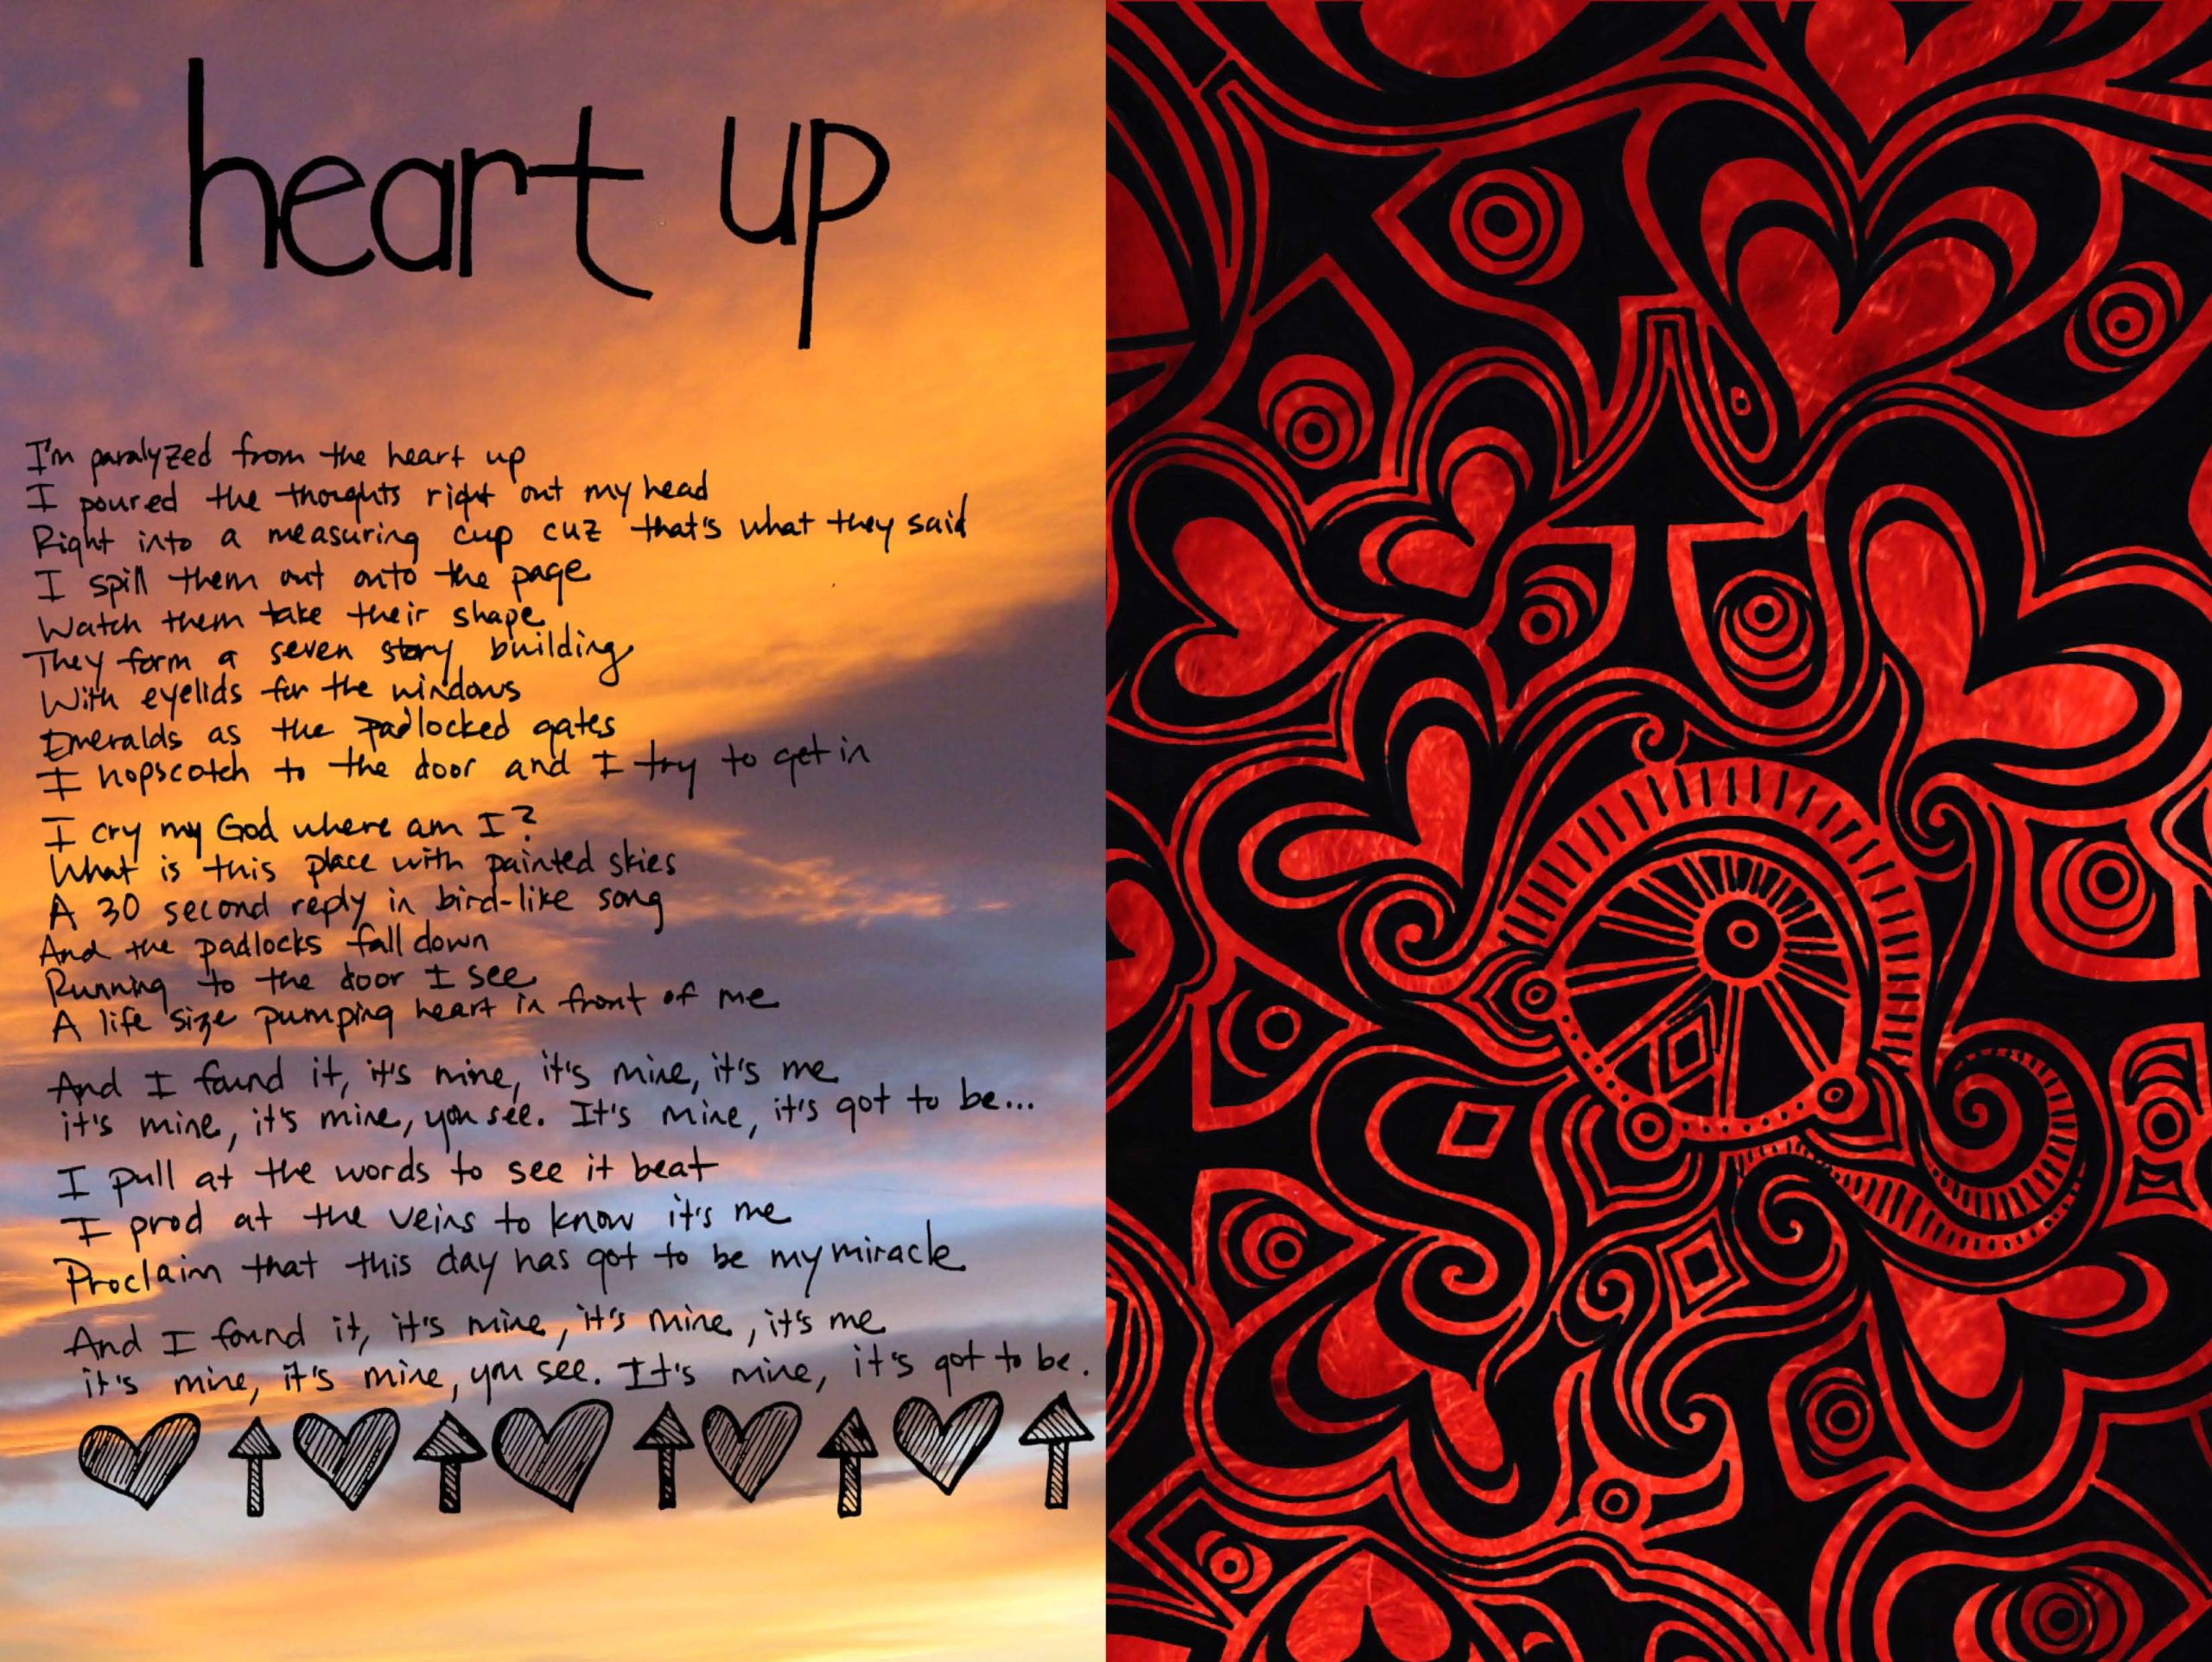 heart up
I'm paralyzed from the heart up
I poured the thoughts right out my head
Right into a measuring cup cuz that's what they said
I spill them out onto the page
Watch them take their shape
They form a seven story building
With eyelids for the windows
Emeralds as the padlocked gates
I hopscotch to the door and I try to get in
I cry my God where am I?
What is this place with painted skies
A 30 second reply in bird-like song
And the padlocks fall down
Running to the door I see
A life size pumping heart in front of me
And I found it, it's mine, it's mine, it's me
it's mine, it's mine, you see. It's mine, it's got to be...
I pull at the words to see it beat
I prod at the veins to know it's me
Proclaim that this day has got to be my miracle
And I found it, it's mine, it's mine, it's me
it's mine, it's mine, you see. It's mine, it's got to be.